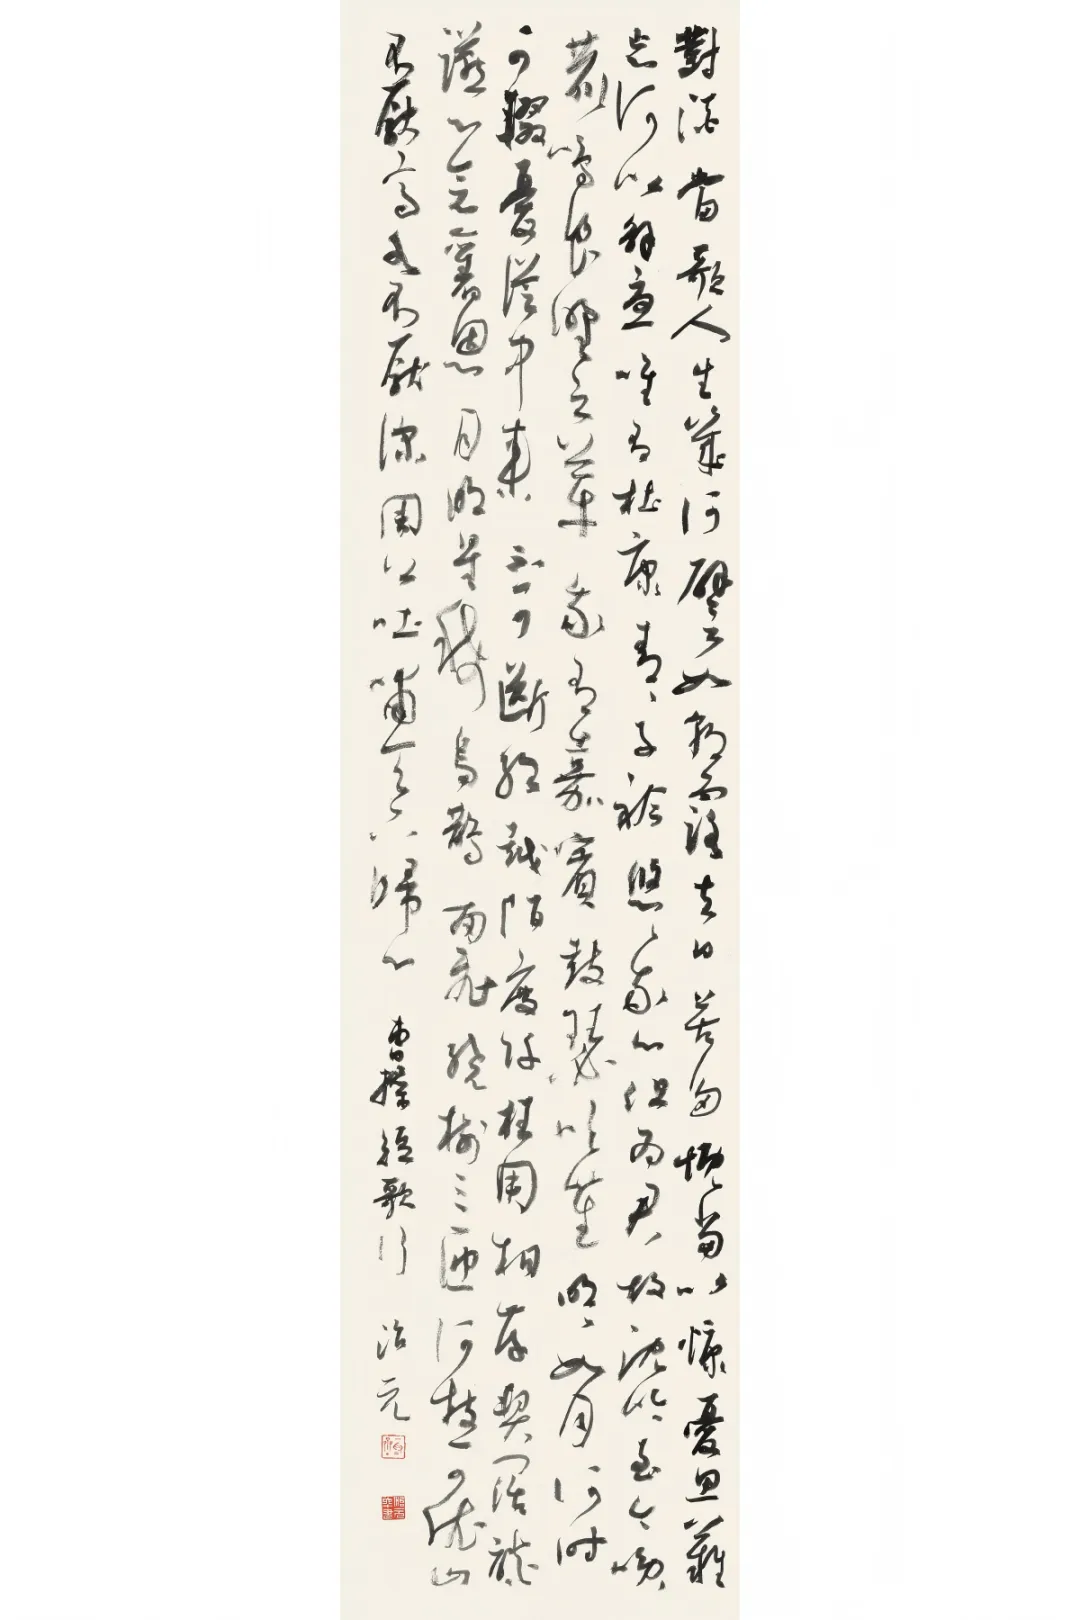 對酒當歌人生幾何譬如朝露去日苦多慨當以慷憂思難
忘何以解憂唯有杜康青々子衿悠々我心但為君故沈吟至今呦々
鹿鳴食野之苹我有嘉賓鼓瑟吹笙明々如月何時
可掇憂從中來不可斷絕越陌度阡枉用相存契闊談
讌心念舊恩月明星稀烏鵲南飛繞樹三匝何枝可依山
不厭高水不厭深周公吐哺天下歸心 曹操短歌行 治元